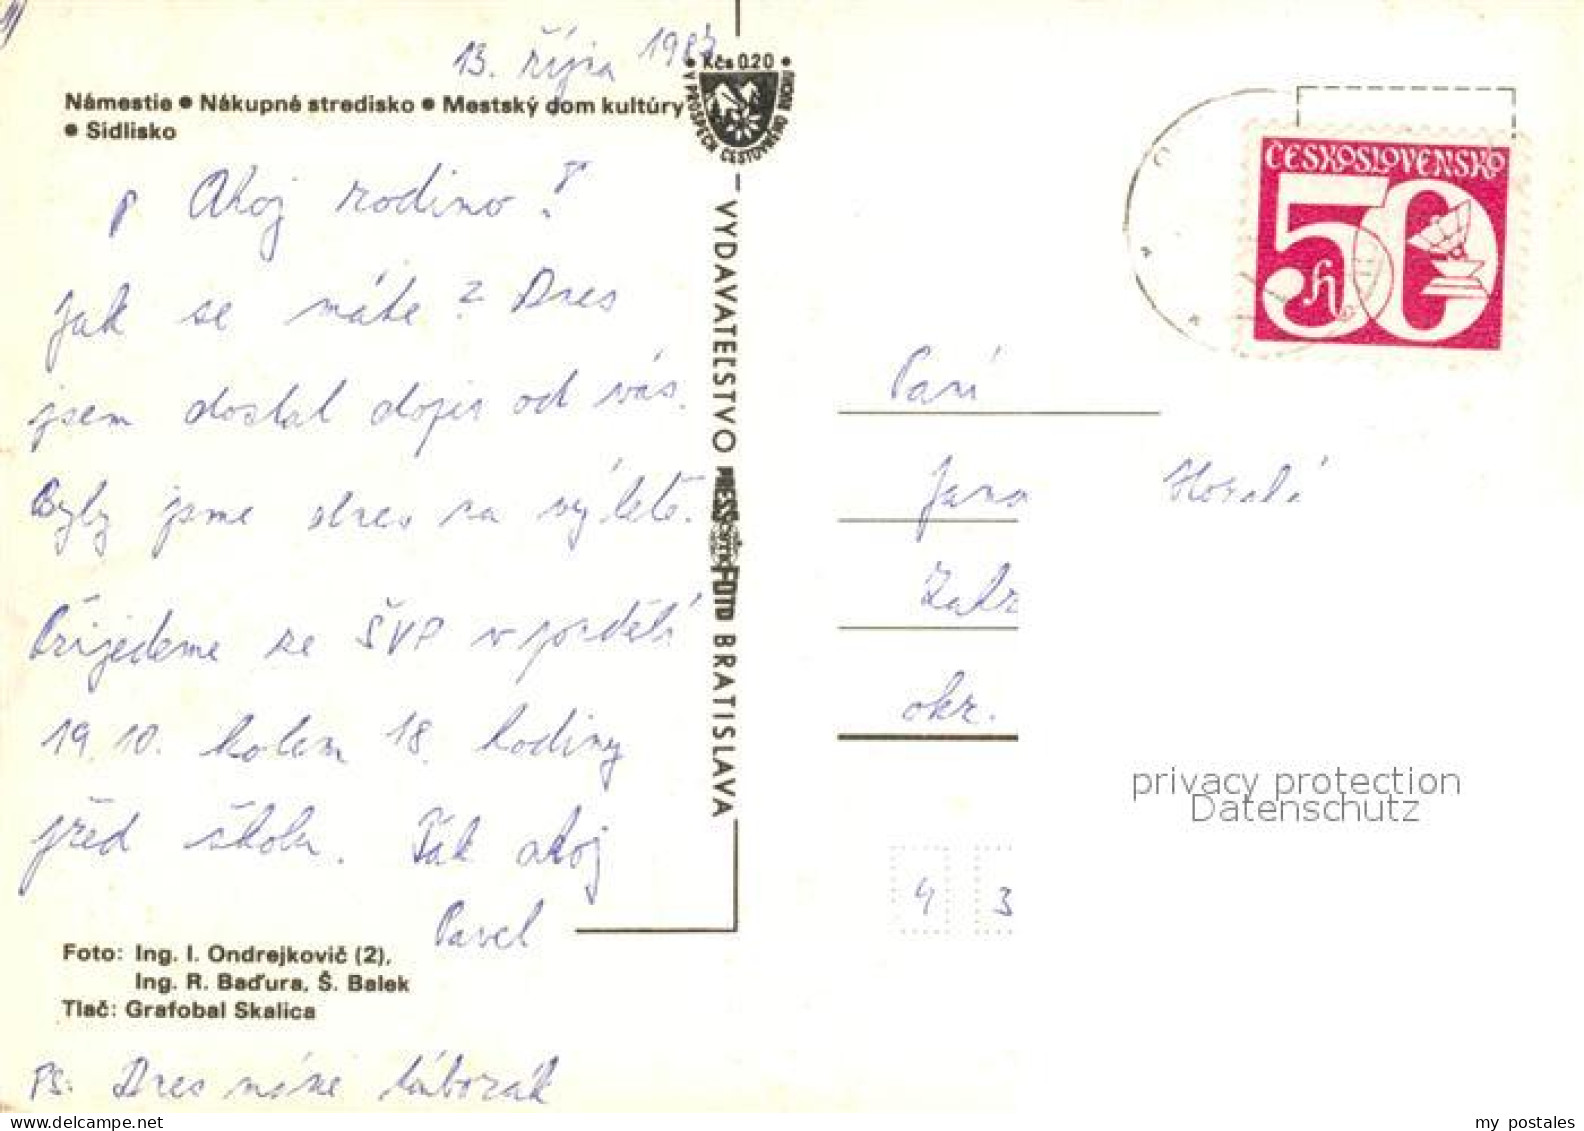 13. října 1987
Kčs 0.20
V PROSPECH CESTOVNÉHO RUCHU
Námestie ● Nákupné stredisko ● Mestský dom kultúry
● Sídlisko
Ahoj rodino!
Jak se máte? Dnes
jsem dostal dopis od vás.
Byly jsme dnes na výletě.
Přijedeme ze ŠVP v pondělí
19.10. kolem 18. hodiny
před školu. Tak ahoj
Pavel
Foto: Ing. I. Ondrejkovič (2),
Ing. R. Baďura, Š. Balek
Tlač: Grafobal Skalica
PS: Dnes máme táborák
VYDAVATEĽSTVO PRESSFOTO BRATISLAVA
ČESKOSLOVENSKO
50 h
Paní
Jana
okr.
4 3
privacy protection
Datenschutz
my postales